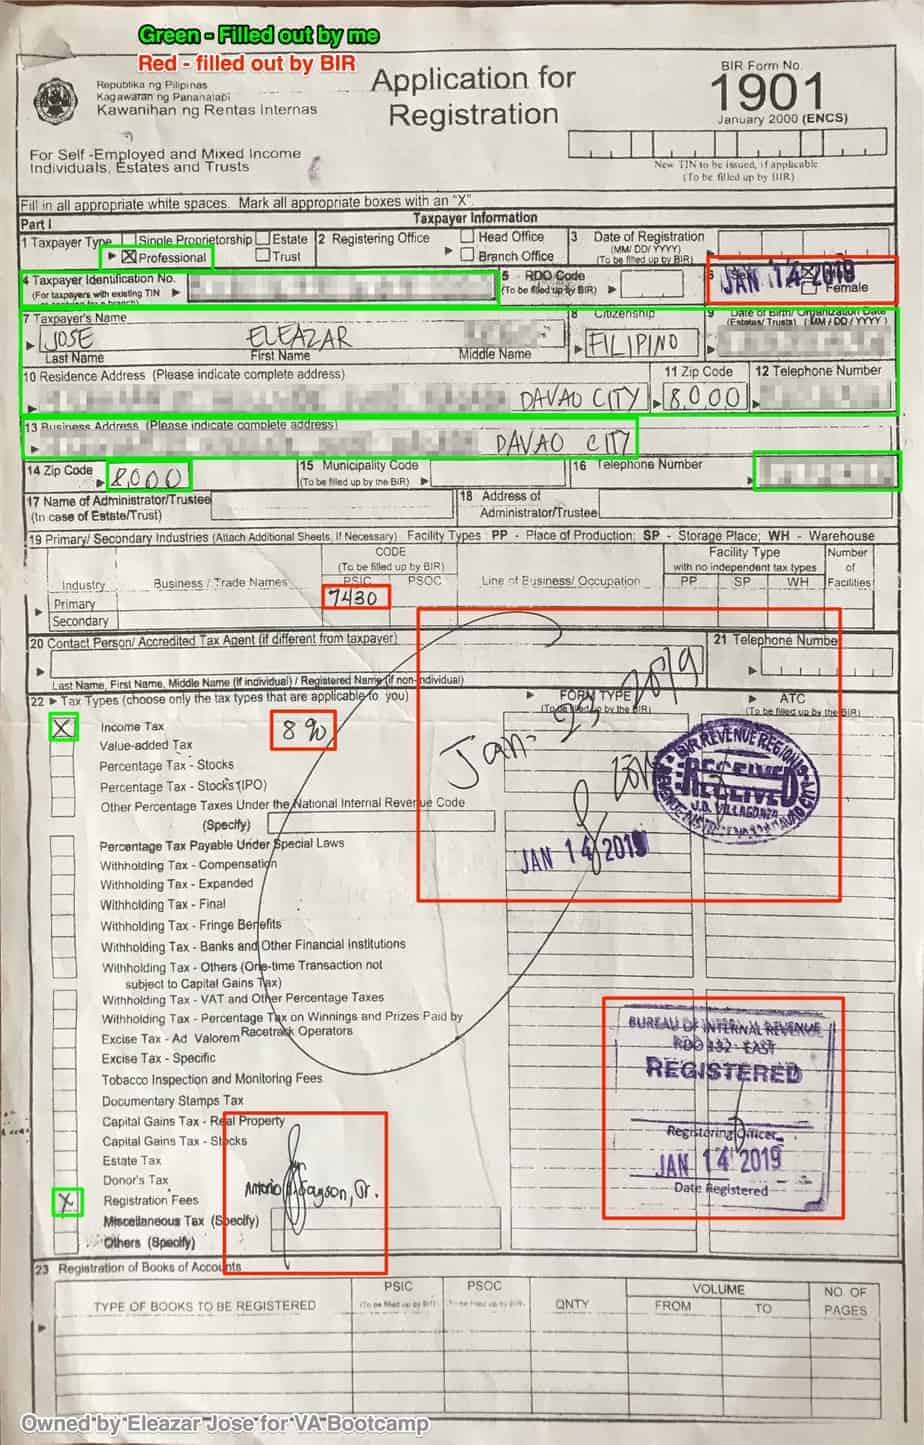 Green - Filled out by me
Red - filled out by BIR
Republika ng Pilipinas
Kagawaran ng Pananalapi
Kawanihan ng Rentas Internas
Application for
Registration
BIR Form No.
1901
January 2000 (ENCS)
For Self -Employed and Mixed Income
Individuals, Estates and Trusts
New TIN to be issued, if applicable
(To be filled up by BIR)
Fill in all appropriate white spaces. Mark all appropriate boxes with an "X".
Part I Taxpayer Information
1 Taxpayer Type Single Proprietorship Estate 2 Registering Office Head Office 3 Date of Registration
X Professional Trust Branch Office (MM/ DD/ YYYY)
(To be filled up by BIR)
4 Taxpayer Identification No. 5 RDO Code 6 Sex
(For taxpayers with existing TIN (To be filled up by BIR) Female
JAN 14 2019
7 Taxpayer's Name 8 Citizenship 9 Date of Birth/ Organization Date
(Estates/ Trusts) (MM / DD / YYYY)
JOSE ELEAZAR FILIPINO
Last Name First Name Middle Name
10 Residence Address (Please indicate complete address) 11 Zip Code 12 Telephone Number
DAVAO CITY 8000
13 Business Address (Please indicate complete address)
DAVAO CITY
14 Zip Code 8000 15 Municipality Code 16 Telephone Number
(To be filled up by the BIR)
17 Name of Administrator/Trustee 18 Address of
(In case of Estate/Trust) Administrator/Trustee
19 Primary/ Secondary Industries (Attach Additional Sheets, If Necessary) Facility Types PP - Place of Production; SP - Storage Place; WH - Warehouse
CODE Facility Type Number
(To be filled up by BIR) with no independent tax types of
Industry Business / Trade Names PSIC PSOC Line of Business/ Occupation PP SP WH Facilities
Primary 7430
Secondary
20 Contact Person/ Accredited Tax Agent (if different from taxpayer) 21 Telephone Number
Last Name, First Name, Middle Name (If individual) / Registered Name (If non-individual)
22 Tax Types (choose only the tax types that are applicable to you) FORM TYPE ATC
(To be filled up by the BIR) (To be filled up by the BIR)
X Income Tax 8%
Value-added Tax
Percentage Tax - Stocks
Percentage Tax - Stocks (IPO)
Other Percentage Taxes Under the National Internal Revenue Code
(Specify)
Percentage Tax Payable Under Special Laws
Withholding Tax - Compensation
Withholding Tax - Expanded
Withholding Tax - Final
Withholding Tax - Fringe Benefits
Withholding Tax - Banks and Other Financial Institutions
Withholding Tax - Others (One-time Transaction not
subject to Capital Gains Tax)
Withholding Tax - VAT and Other Percentage Taxes
Withholding Tax - Percentage Tax on Winnings and Prizes Paid by
Racetrack Operators
Excise Tax - Ad Valorem
Excise Tax - Specific
Tobacco Inspection and Monitoring Fees
Documentary Stamps Tax
Capital Gains Tax - Real Property
Capital Gains Tax - Stocks
Estate Tax
Donor's Tax
X Registration Fees
Miscellaneous Tax (Specify)
Others (Specify)
2019
BIR REVENUE REGION
RECEIVED
J.D. VILLAGONZA
JAN 14 2019
BUREAU OF INTERNAL REVENUE
EAST
REGISTERED
Registering Officer
JAN 14 2019
Date Registered
Antonio Jr.
23 Registration of Books of Accounts
TYPE OF BOOKS TO BE REGISTERED PSIC PSOC QNTY VOLUME NO. OF
(To be filled up by BIR) (To be filled up by BIR) FROM TO PAGES
Owned by Eleazar Jose for VA Bootcamp